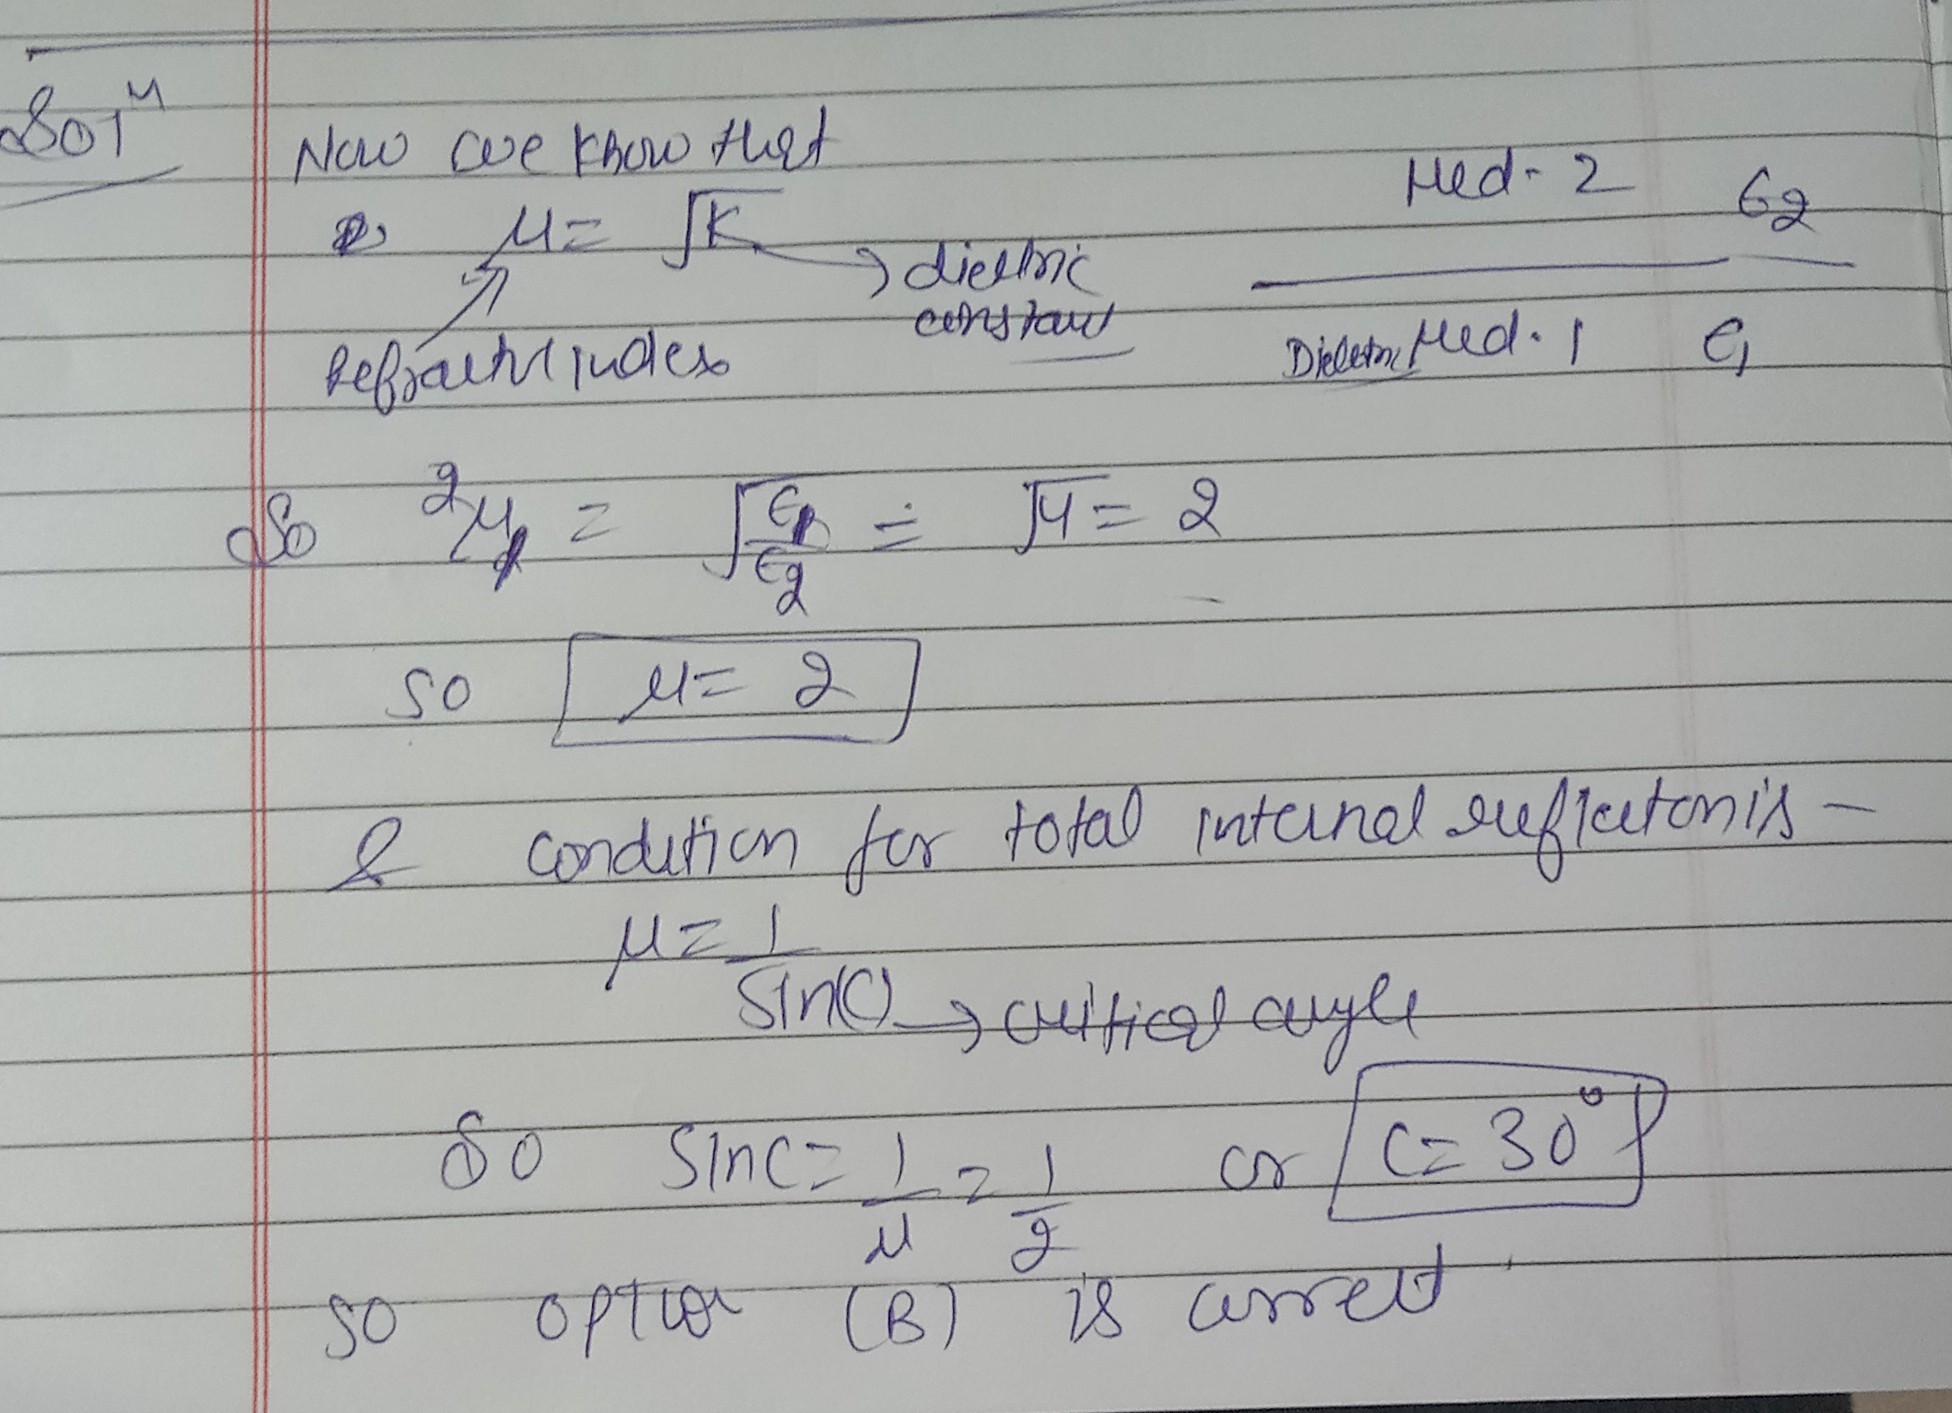 Solⁿ
Now we know that
μ = √K → dielctric constant
Refractive index
Med-2 ϵ2
Dielectric Med. 1 ϵ1
So ²μ1 = √ϵ1/ϵ2 = √4 = 2
so μ = 2
& condition for total internal reflection is -
μ = 1/sin(C) → critical angle
So sinc = 1/μ = 1/2 or C = 30°
so option (B) is correct